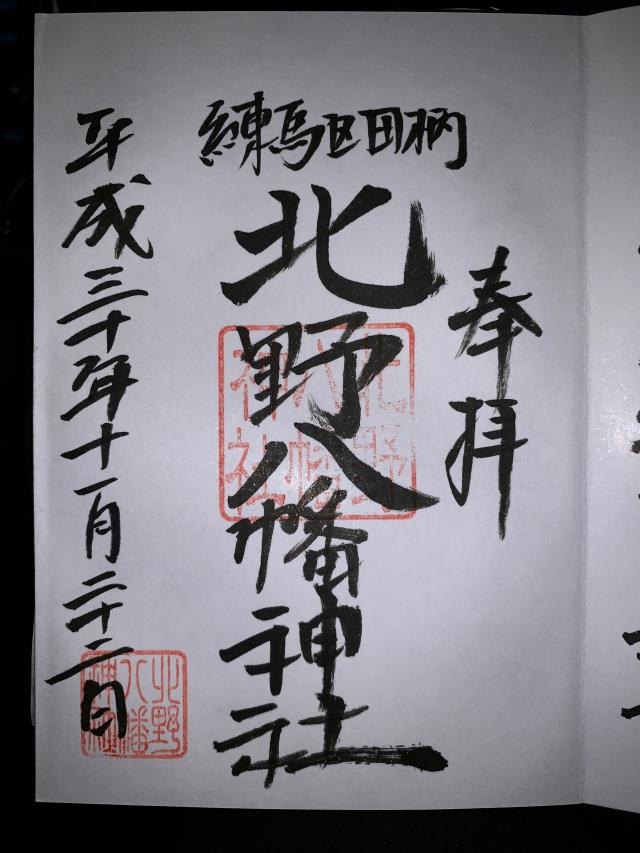 奉拝
練馬区田柄
北野八幡神社
北野八幡神社
平成三十年十一月二十二日
北野八幡神社